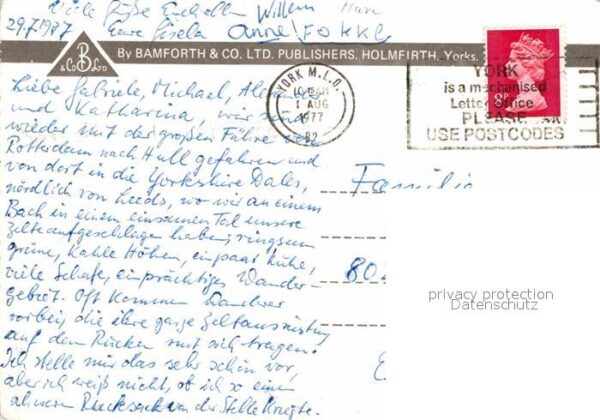 Viele Grüße Euch allen Willem
29.7.1977 Eure Gisela Anne FOKKE
B
& Co LTD
By BAMFORTH & CO. LTD. PUBLISHERS. HOLMFIRTH. Yorks.
YORK M.L.O.
1 AUG
1977
YORK
is a mechanised
Letter Office
PLEASE
USE POSTCODES
Liebe Gabriele, Michael, Alexander
und Katharina, wir sind
wieder mit der großen Fähre von
Rotterdam nach Hull gefahren und
von dort in die Yorkshire Dales,
nördlich von Leeds, wo wir an einem
Bach in einem einsamen Tal unsere
Zelte aufgeschlagen haben; ringsum
grüne, kahle Höhen, ein paar Kühe,
viele Schafe, ein prächtiges Wander-
gebiet. Oft kommen Wanderer
vorbei, die ihre ganze Zeltausrüstung
auf dem Rücken mit sich tragen.
Ich stelle mir das sehr schön vor,
aber ich weiß nicht, ob ich so einen
schweren Rucksack von der Stelle kriegte.
Familie
80
privacy protection
Datenschutz